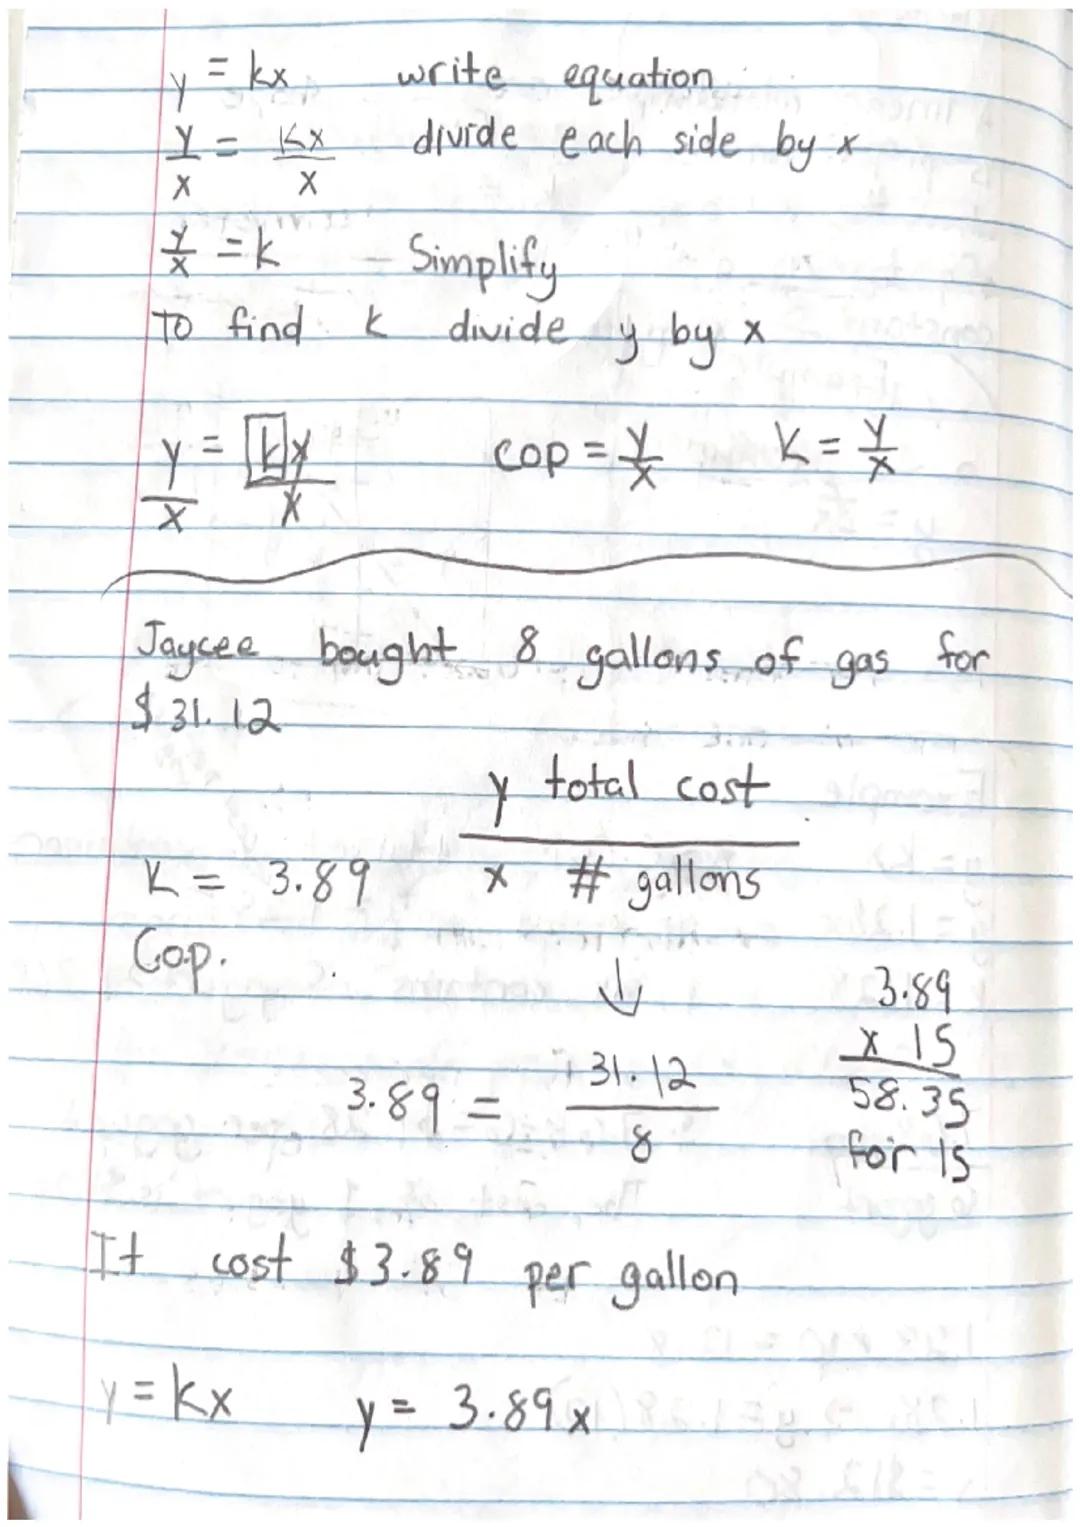 y = kx write equation
y/x = kx/x divide each side by x
y/x = k - Simplify
To find k divide y by x
y/x = ky/x cop = y/x K = y/x
Jaycee bought 8 gallons of gas for
$31.12
y total cost
K = 3.89 x # gallons
Cop. ↓
3.89
x 15
3.89 = 31.12/8 58.35
for 15
It cost $3.89 per gallon
y = kx y = 3.89x